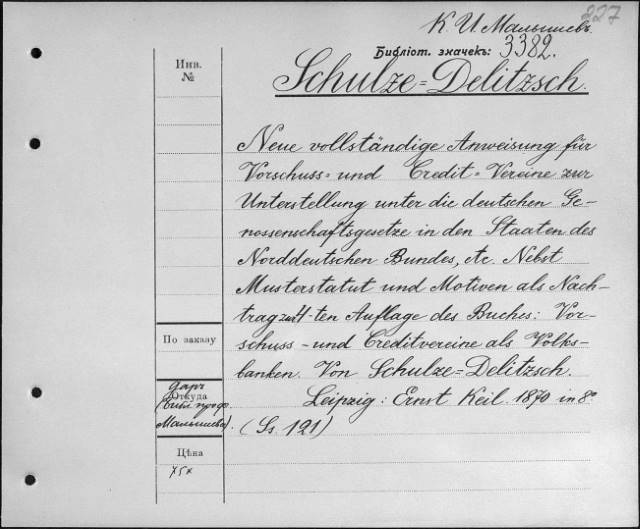 227
К. И. Малышевъ.
Библіот. значекъ: 3382.
Schulze=Delitzsch.
Инв.
№
Neue vollständige Anweisung für
Vorschuss= und Credit=Vereine zur
Unterstellung unter die deutschen Ge-
nossenschaftsgesetze in den Staaten des
Norddeutschen Bundes, etc. Nebst
Musterstatut und Motiven als Nach-
trag zur 4-ten Auflage des Buches: Vor-
schuss - und Creditvereine als Volks-
banken. Von Schulze=Delitzsch.
Leipzig: Ernst Keil. 1870 in 8°
(Ss. 121)
По заказу
Даръ
Откуда
(Библ. проф.
Малышева).
Цѣна
75к